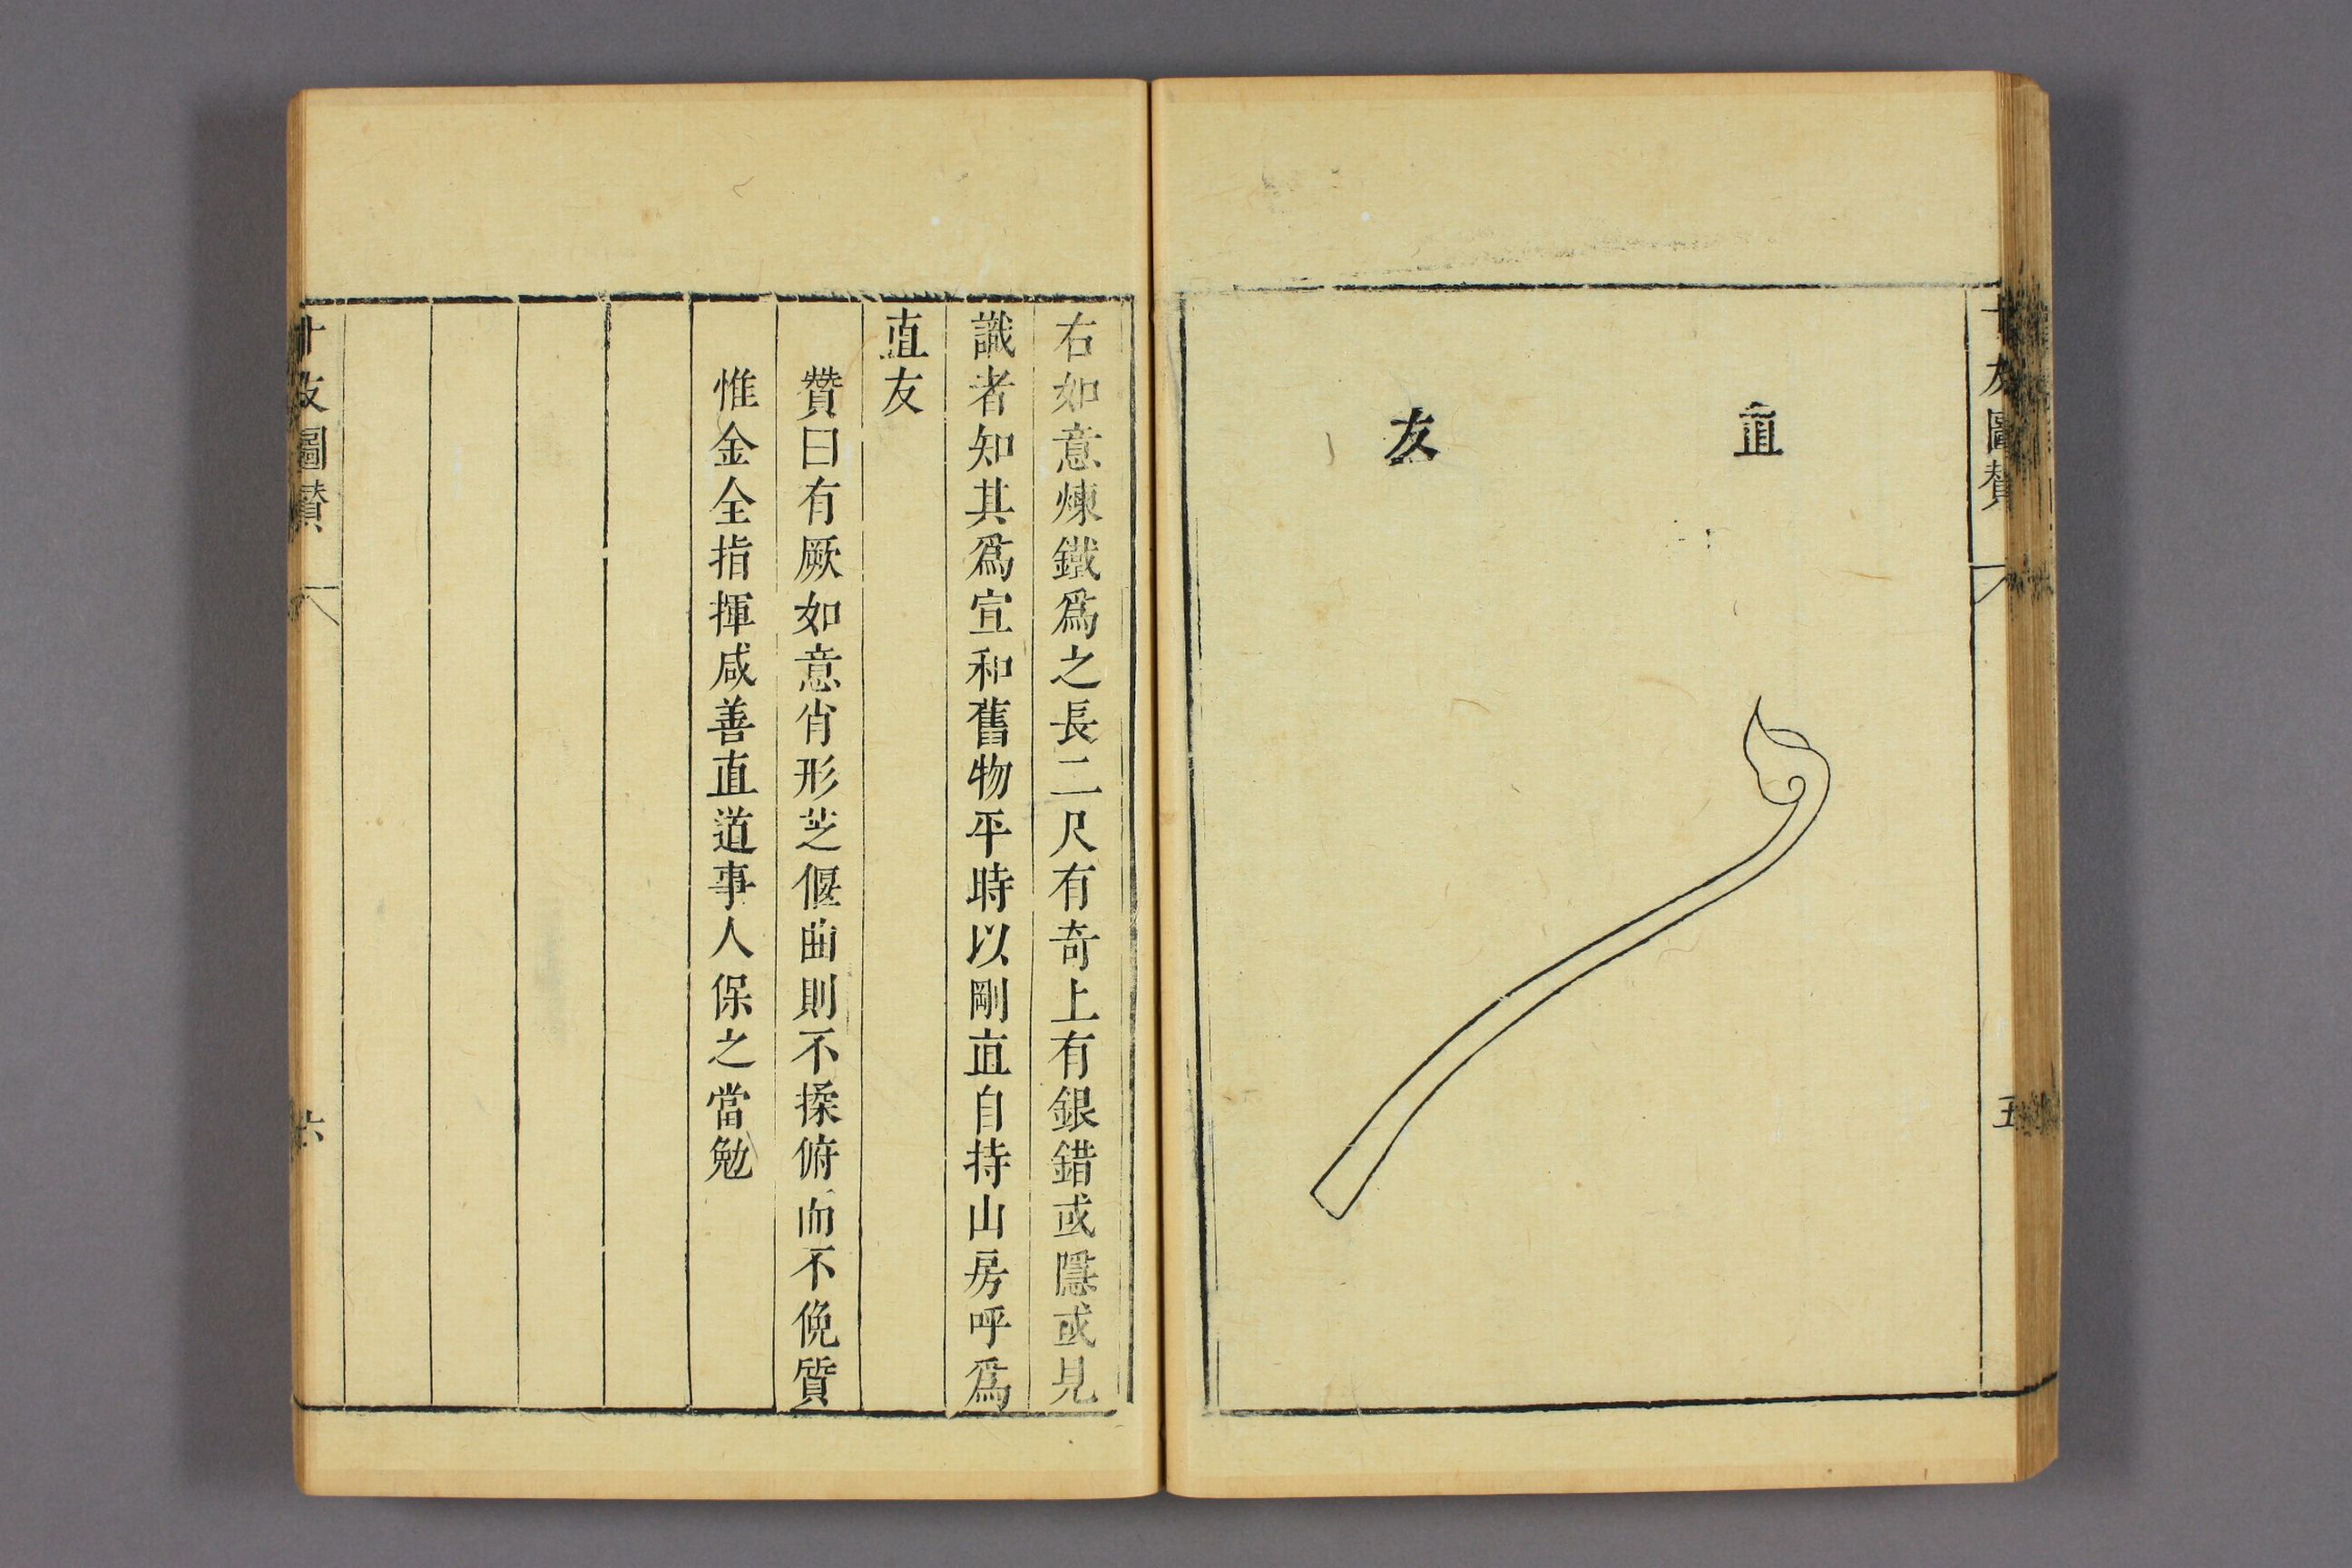 十友圖贊
五
直友
右如意煉鐵爲之長二尺有奇上有銀錯或隱或見
識者知其爲宣和舊物平時以剛直自持山房呼爲
直友
贊曰有厥如意肖形芝偃曲則不揉俯而不俛質
惟金全指揮咸善直道事人保之當勉
十友圖贊
六